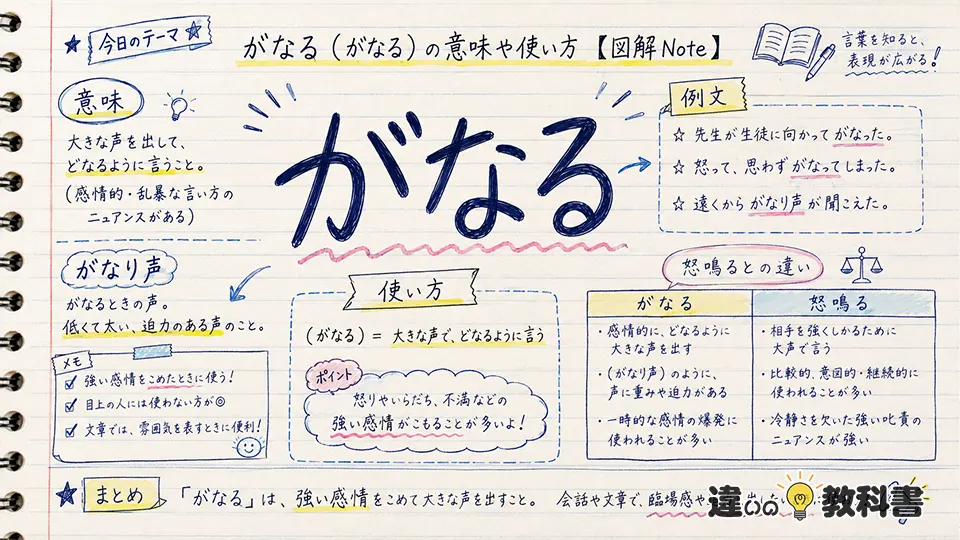 今日のテーマ
がなる（がなる）の意味や使い方【図解Note】
言葉を知ると、
表現が広がる!
意味
大きな声を出して、
どなるように言うこと。
（感情的・乱暴な言い方の
ニュアンスがある）
がなる
例文
☆ 先生が生徒に向かってがなった。
☆ 怒って、思わずがなってしまった。
☆ 遠くからがなり声が聞こえた。
がなり声
がなるときの声。
低くて太い、迫力のある声のこと。
メモ
強い感情をこめたときに使う!
目上の人には使わない方が◎
文章では、雰囲気を表すときに便利!
使い方
（がなる）= 大きな声で、どなるように言う
ポイント
怒りやいらだち、不満などの
強い感情がこもることが多いよ!
怒鳴るとの違い
がなる
・感情的に、どなるように
大きな声を出す
・（がなり声）のように、
声に重みや迫力がある
・一時的な感情の爆発に
使われることが多い
怒鳴る
・相手を強くしかるために
大声で言う
・比較的、意図的・継続的に
使われることが多い
・冷静さを欠いた強い叱責の
ニュアンスが強い
まとめ
「がなる」は、強い感情をこめて大きな声を出すこと。 会話や文章で、臨場感や
違いの教科書